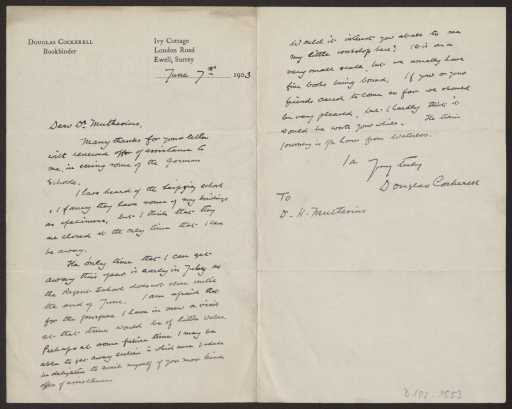 DOUGLAS COCKERELL
Bookbinder
Ivy Cottage
London Road
Ewell, Surrey
June 7th 1903
Dear Dr. Muthesius,
Many thanks for your letter
with renewed offer of assistance to
me, in seeing some of the German
Schools.
I have heard of the Leipzig school
& I fancy they have some of my bindings
as specimens, but I think that they
are closed at the only time that I can
be away.
The only time that I can get
away this year is early in July as
the Regent School does not close until
the end of June. I am afraid that
for the purpose I have in view a visit
at that time would be of little value.
Perhaps at some future time I may be
able to get away earlier in which case I should
be delighted to avail myself of your most kind
offer of assistance.
Would it interest you also to see
my little workshop here? It is on a
very small scale but we usually have
fine books being bound. If you or your
friends cared to come so far we should
be very pleased, but I hardly think it
would be worth your while. The train
journey is an hour from Waterloo.
I am
Yours truly
Douglas Cockerell
To
D. H. Muthesius